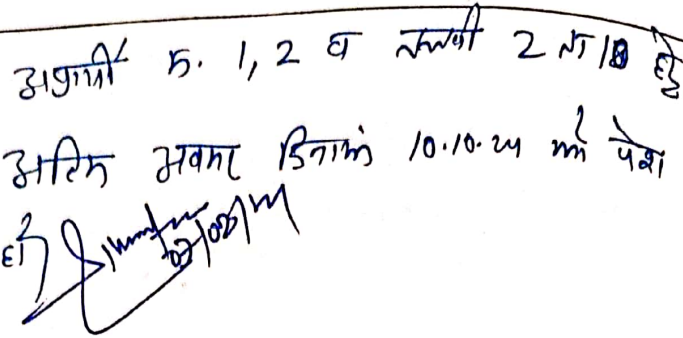 अप्रार्थी क्र. 1, 2 व तलबी 2 ता 18 हेतु
अंतिम अवसर दिनांक 10.10.24 को पेश
हो